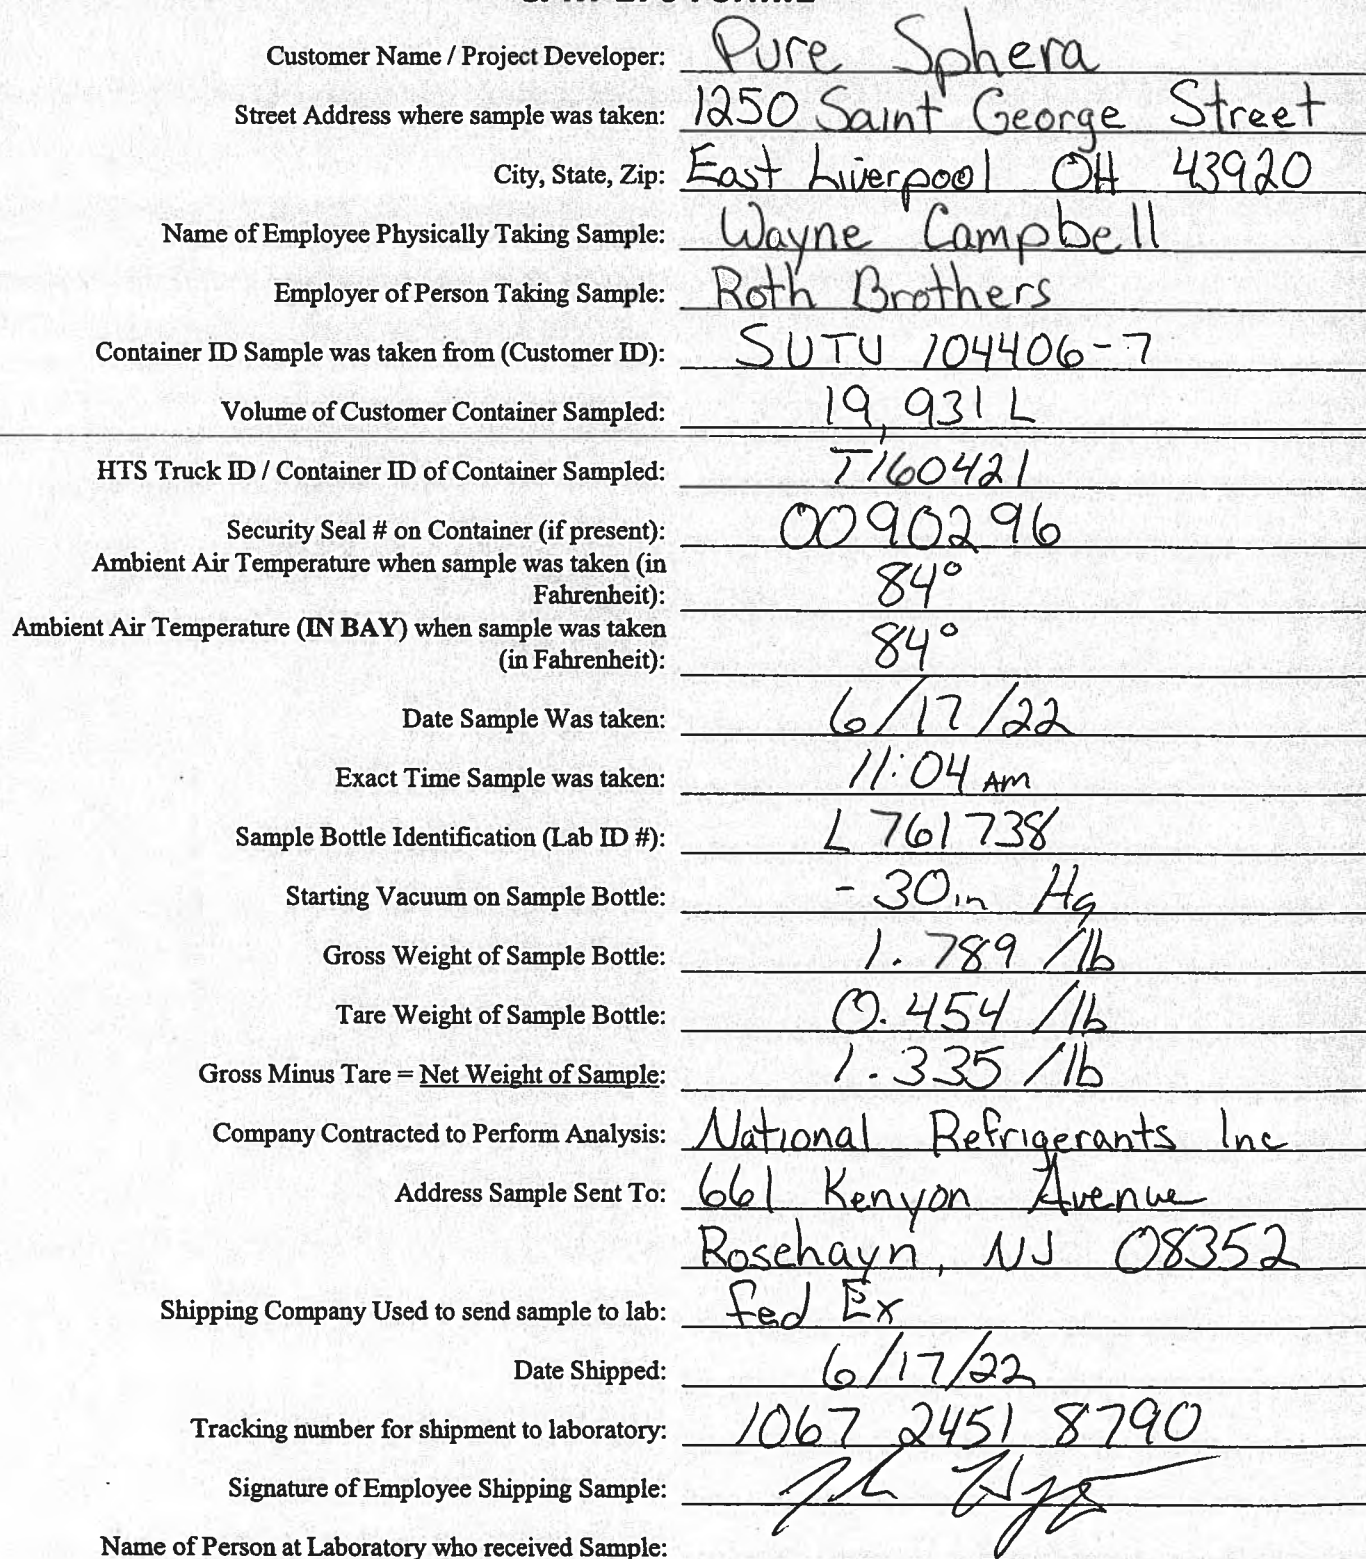 Customer Name / Project Developer: Pure Sphera
Street Address where sample was taken: 1250 Saint George Street
City, State, Zip: East Liverpool OH 43920
Name of Employee Physically Taking Sample: Wayne Campbell
Employer of Person Taking Sample: Roth Brothers
Container ID Sample was taken from (Customer ID): SUTU 104406-7
Volume of Customer Container Sampled: 19,931 L
HTS Truck ID / Container ID of Container Sampled: T160421
Security Seal # on Container (if present): 0090296
Ambient Air Temperature when sample was taken (in
Fahrenheit): 84°
Ambient Air Temperature (IN BAY) when sample was taken
(in Fahrenheit): 84°
Date Sample Was taken: 6/17/22
Exact Time Sample was taken: 11:04 AM
Sample Bottle Identification (Lab ID #): L 761738
Starting Vacuum on Sample Bottle: -30in Hg
Gross Weight of Sample Bottle: 1.789 /lb
Tare Weight of Sample Bottle: 0.454 /lb
Gross Minus Tare = Net Weight of Sample: 1.335 /lb
Company Contracted to Perform Analysis: National Refrigerants Inc
Address Sample Sent To: 661 Kenyon Avenue
Rosehayn, NJ 08352
Shipping Company Used to send sample to lab: Fed Ex
Date Shipped: 6/17/22
Tracking number for shipment to laboratory: 1067 2451 8790
Signature of Employee Shipping Sample:
Name of Person at Laboratory who received Sample: